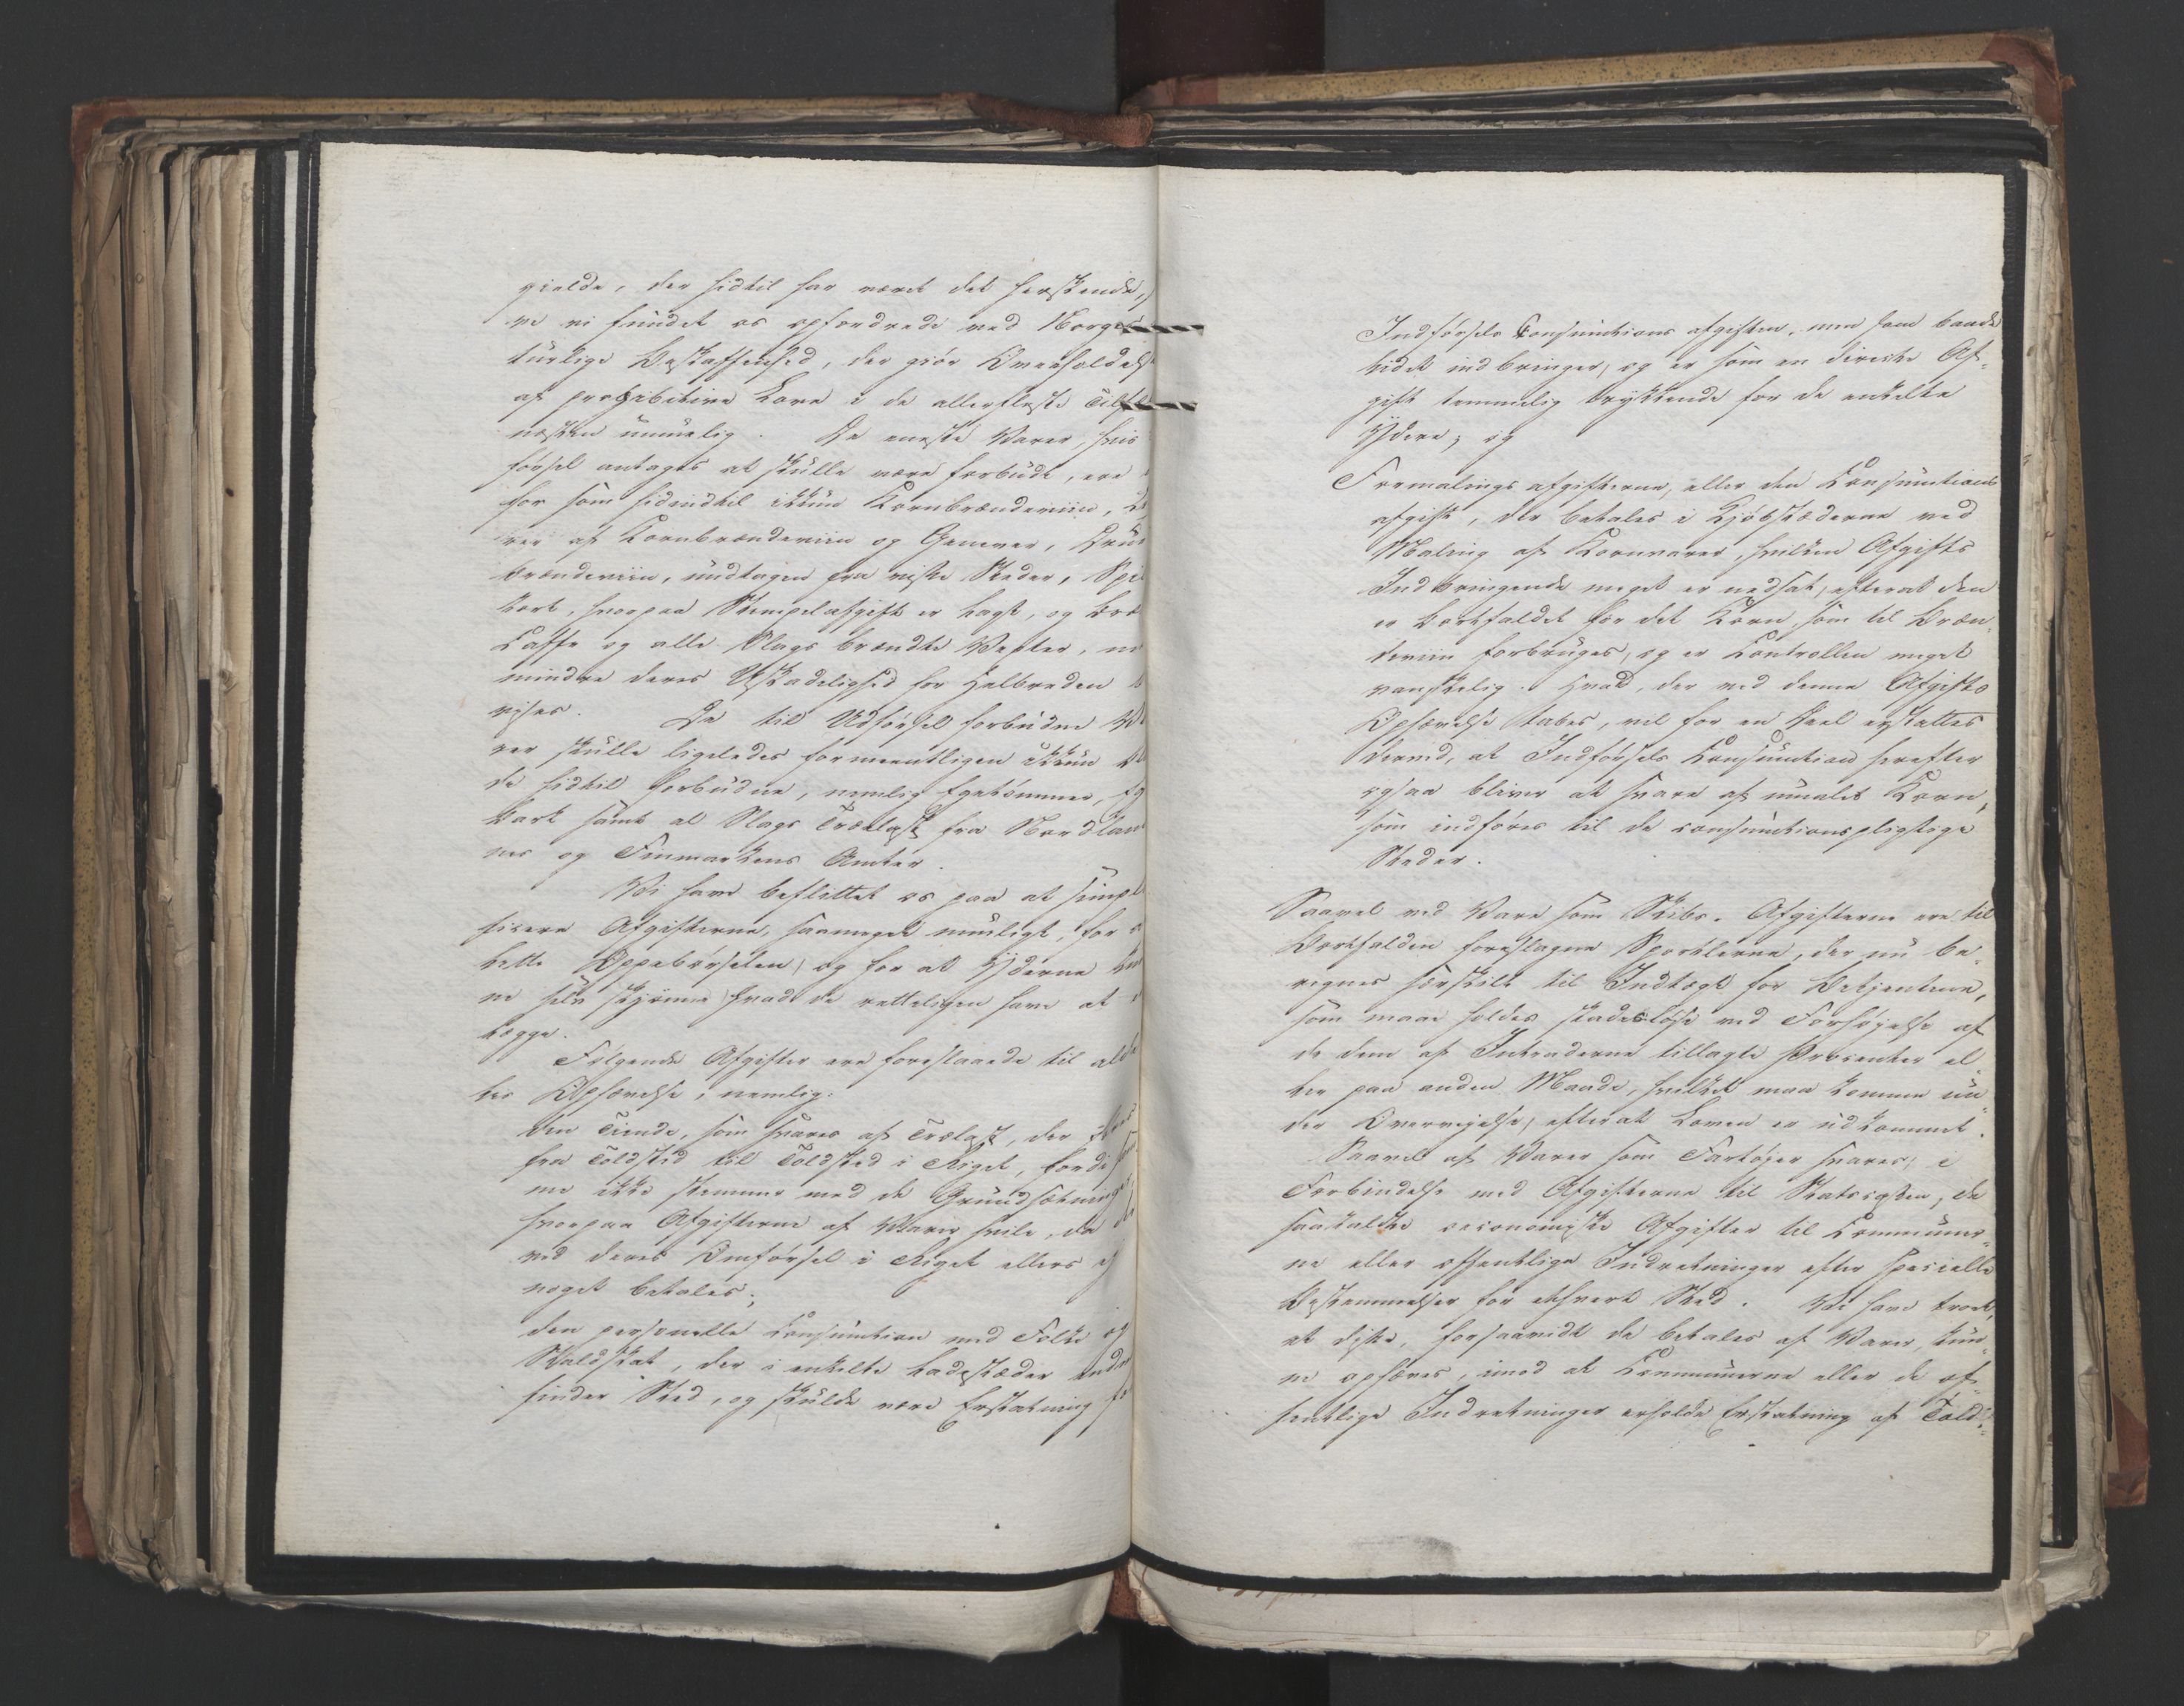 gielde, der hidtil har været det herskende,
ve vi fundet os opfordrede ved Norges
turlige Beskaffenhed, der giör Overholdels
af prohibitive Love i de allerfleste Tilfæl
næsten umuelig. De eneste Varer, hvis
försel antages at skulle være forbudt, ere
for som hidindtil ikkun Kornbrændeviin, Li
rer af Kornbrændeviin og Genever, Drue
brændeviin, undtagen fra visse Steder, Spil
kort, hvorpaa Stempelafgift er lagt, og bræ
Caffe og alle Slags brændte Vexter, m
mindre deres Uskadelighed for Helbreden b
vises. De til Udförsel forbudne Va
rer skulle ligeledes formeentligen ikkun bl
de hidtil forbudne, nemlig Egetömmer, Eg
bark samt al Slags Trælast fra Nordlan
nes og Finmarkens Amter.
Vi have beflittet os paa at simpl
ficere Afgifterne, saameget muligt, for a
lette Oppebörselen, og for at Yderne kun
ne selv skjönne hvad de rettelligen have at e
lægge.
Følgende Afgifter ere foreslaaede til alde
les Ophævelse, nemlig:
den Tiende, som svares af Trælast, der föres
fra Toldsted til Toldsted i Riget, fordi
ne ikke stemmer med de Grundsætninger,
hvorpaa Afgifterne af Varer hvile, da der
ved deres Omförsel i Riget ellers ej
noget betales;
den personelle Consumtion med Folke og
Skatskat, der i enkelte Ladestæder endnu
finder Sted, og skulde være Erstatning for
Indförsels Consumtions afgiften, men som baade
lidet indbringer, og er som en directe Af-
gift temmelig trykkende for de enkelte
Ydere; og
Formalings afgifterne, eller den Consumtions
afgift, der betales i Kjöbstæderne ved
Maling af Kornvarer, hvilken Afgifts
Indbringende meget er nedsat, efterat den
er bortfaldet for det Korn, som til Bræn-
deviin forbruges, og er Controllen meget
vanskelig. Hvad, der ved denne Afgifts
Ophævelse tabes, vil for en Deel erstattes
derved, at Indförsels Consumtion herefter
ogsaa bliver at svare af umalet Korn,
som indföres til de consumtionspligtige
Steder.
Saavel ved Vare som Skibs-Afgifterne ere til
Bortfalden foreslagne Sportlerne, der nu be-
regnes særskilt til Indtægt for Betjentene,
som maae holdes skadeslöse ved Forhöjelse af
de dem af Intraderne tillagte Procenter el-
ler paa anden Maade, hvilket maa komme un-
der Overvejelse, efterat Loven er udkommet.
Saavel af Varer som Fartöjer svares, i
Forbindelse med Afgifterne til Statscassen, de
saakaldte oeconomiske Afgifter til Communer-
ne eller offentlige Indretninger efter specielle
Bestemmelser for ethvert Sted. Vi have troet,
at disse, forsaavidt de betales af Varer, kun-
ne ophæves, imod at Communerne eller de of-
fentlige Indretninger erholde Erstatning af Told-